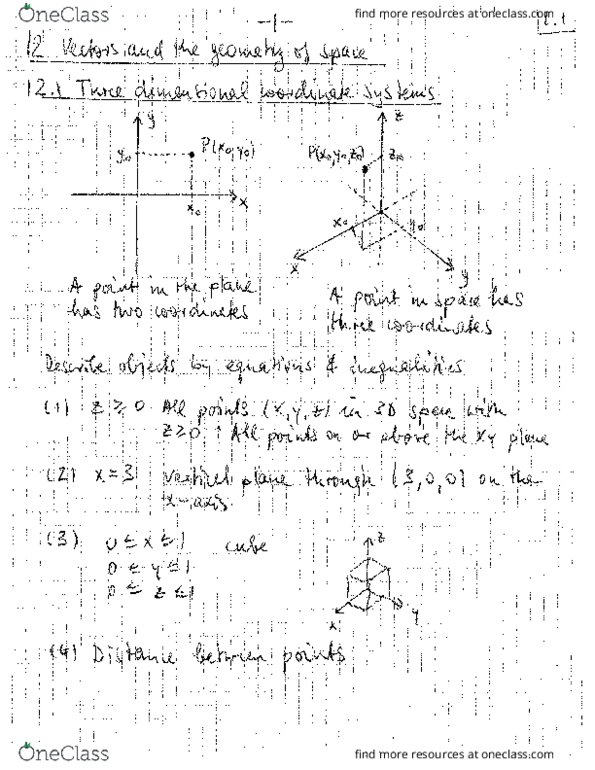 OneClass
find more resources at oneclass.com
-1-
12.1
12 Vectors and the geometry of space
12.1 Three dimensional coordinate systems
y
z
y₀
P(x₀,y₀)
P(x₀,y₀,z₀)
z₀
x₀
x
x₀
y₀
x
y
A point in the plane
has two coordinates
A point in space has
three coordinates
Describe objects by equations & inequalities
(1) z ≥ 0 All points (x,y,z) in 3D space with
z≥0 : All points on or above the xy plane
(2) x=3 vertical plane through (3,0,0) on the
x-axis
(3) 0 ≤ x ≤ 1 cube
0 ≤ y ≤ 1
0 ≤ z ≤ 1
z
x
y
(4) Distance between points
OneClass
find more resources at oneclass.com